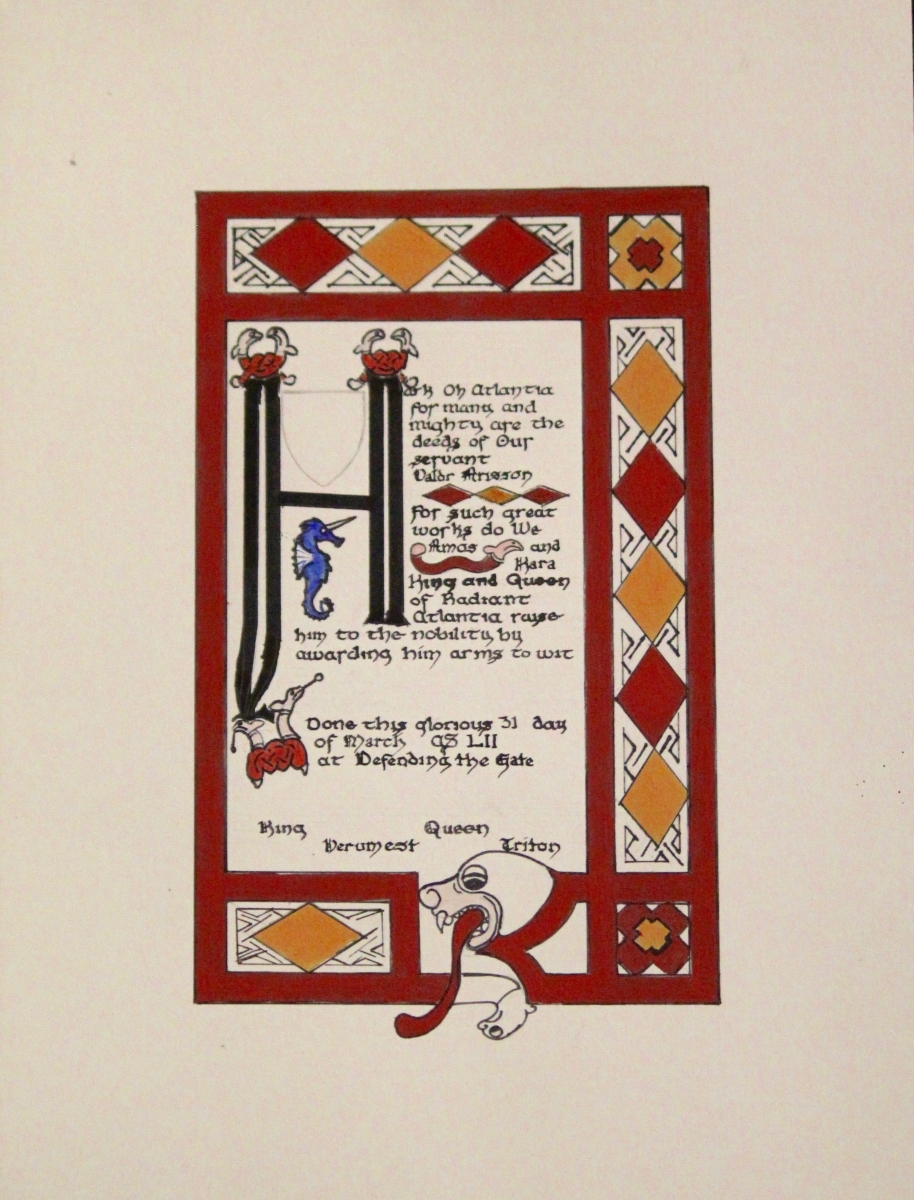 Hark Oh Atlantia
for many and
mighty are the
deeds of Our
servant
Valdr Arisson
For such great
works do We
Amos and
Kara
King and Queen
of Radiant
Atlantia raise
him to the nobility by
awarding him arms to wit
Done this glorious 31 day
of March AS LII
at Defending the Gate
King Queen
Verumest Triton